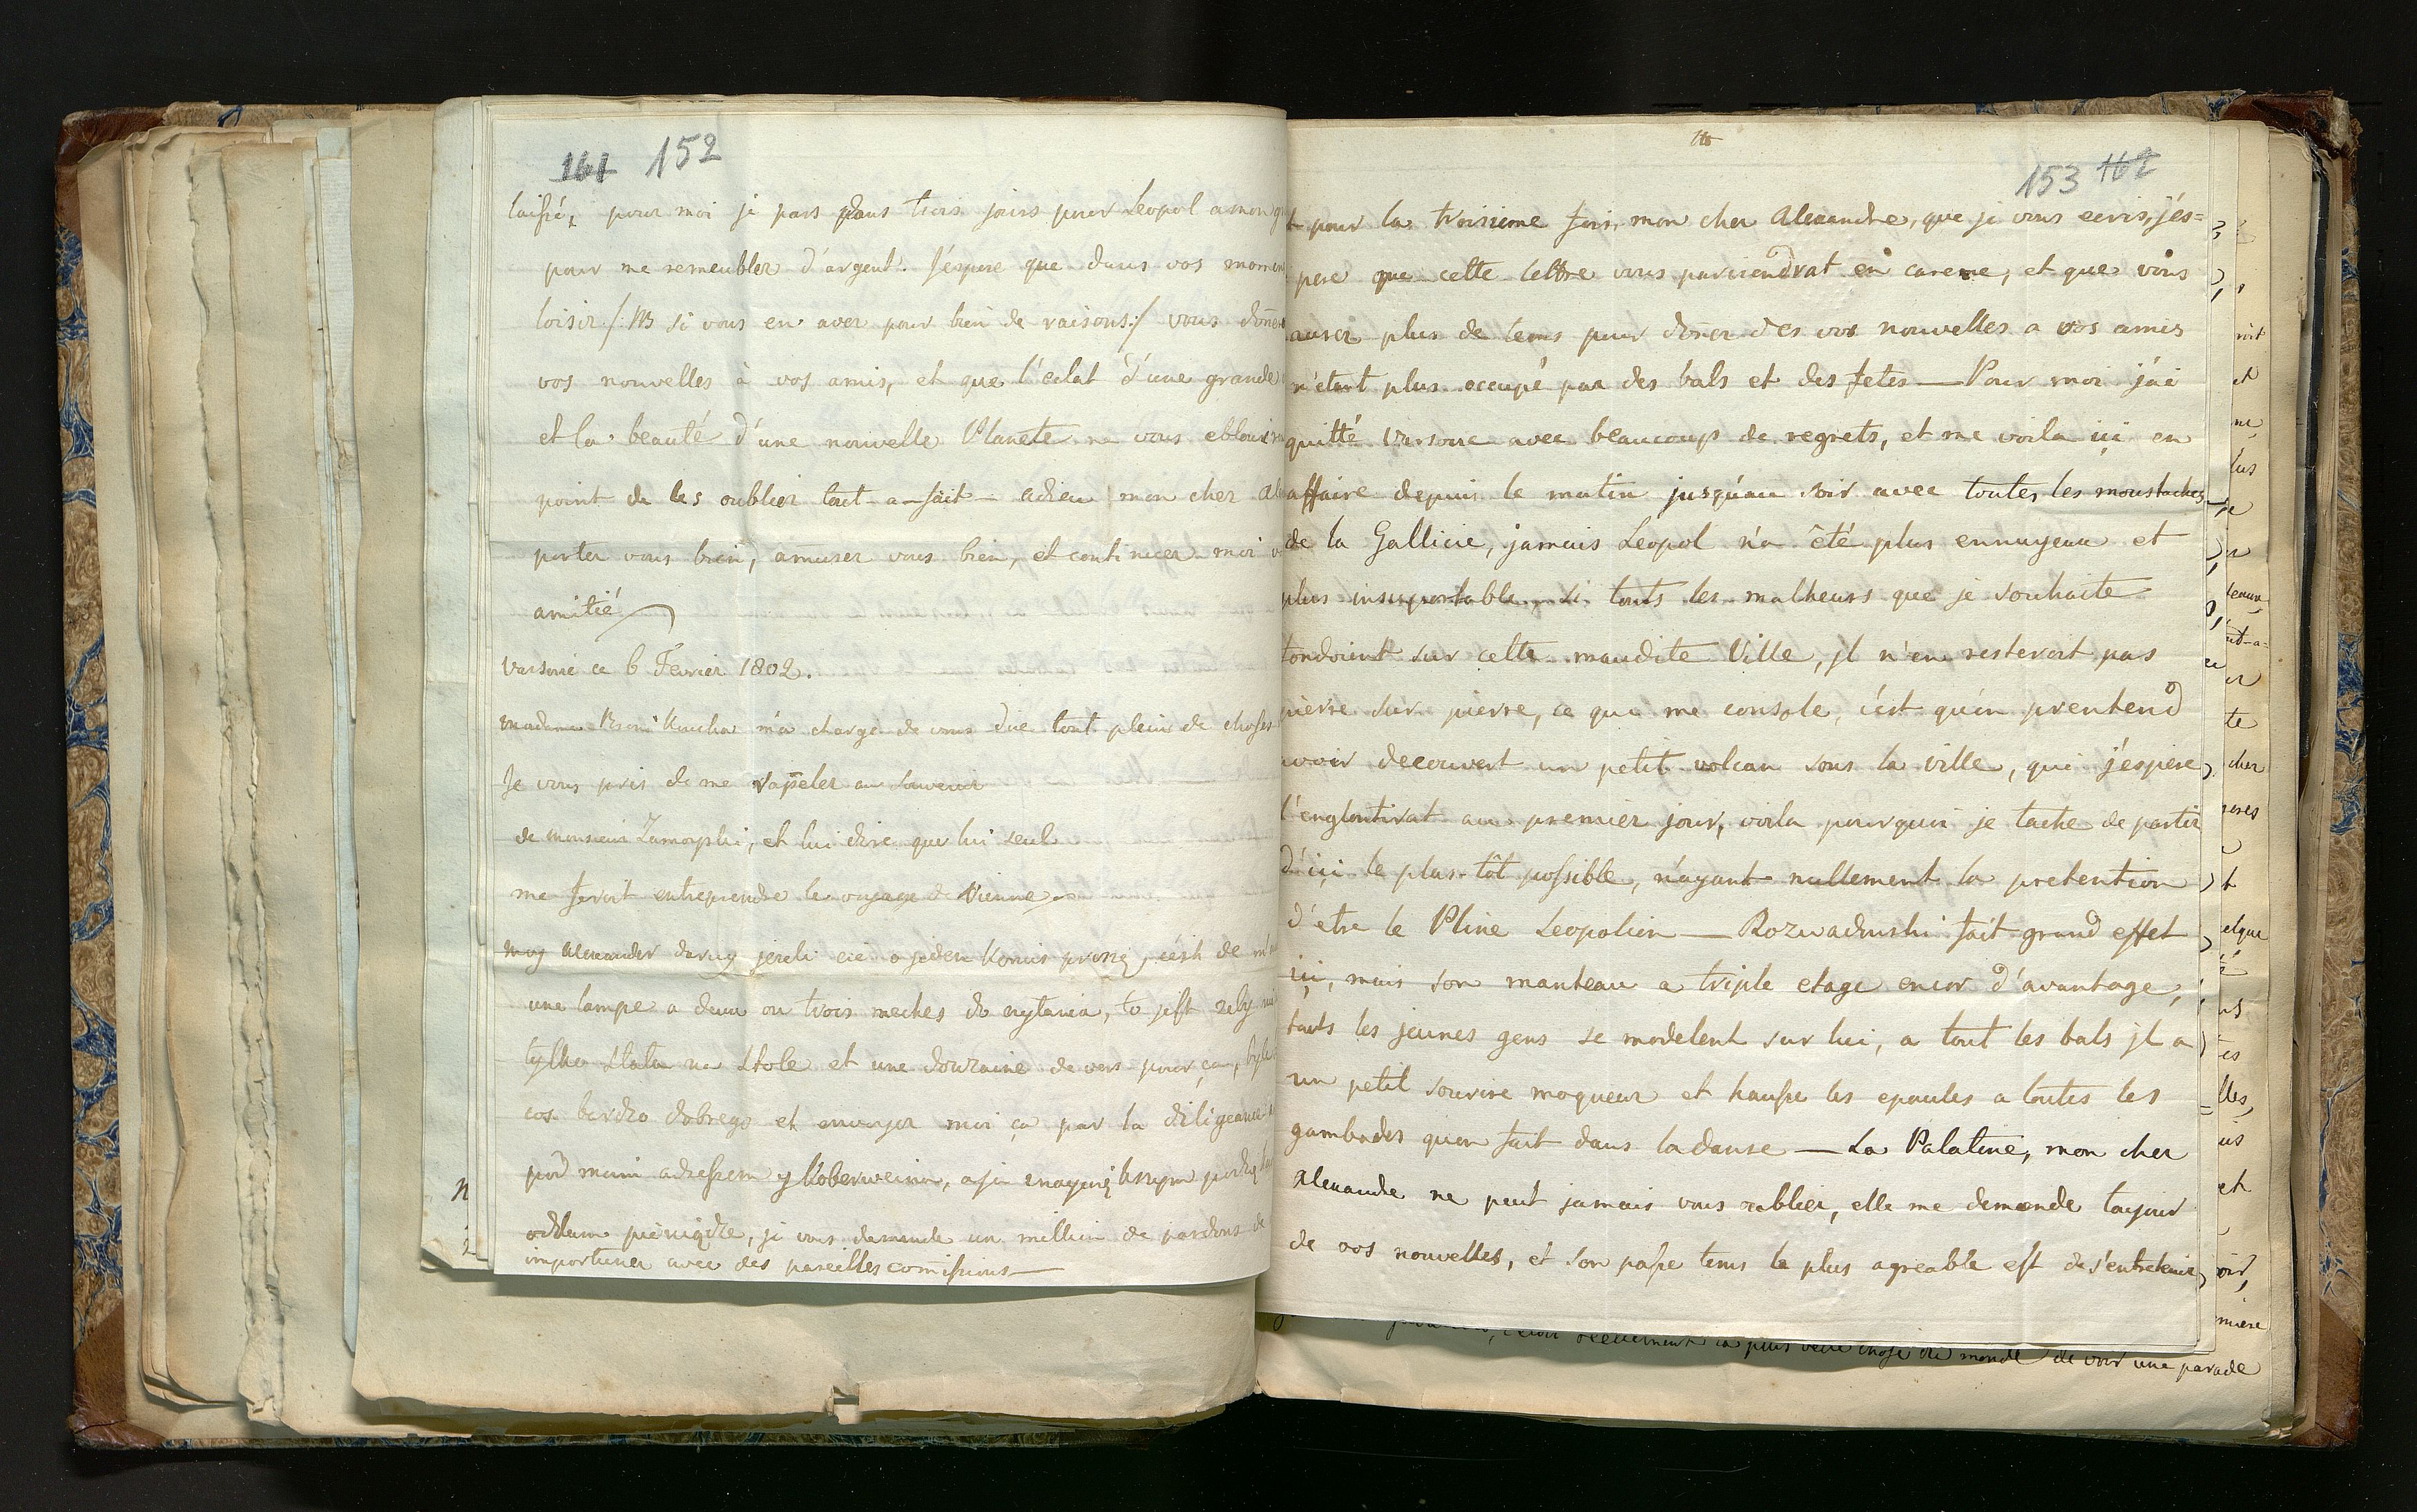 161 152
laissé, pour moi je pars dans trois jours pour Leopol a mon
pour me remeubler d'argent. J'éspere que dans vos momen
loisir /: NB si vous en aver pour bien de raisons :/ vous doner
vos nouvelles à vos amis, et que l'éclat d'une grande
et la beauté d'une nouvelle Planete ne vous
point de les oublier tout-a-fait — adieu mon cher
porter vous bien, amuser vous bien, et continuer moi
amitié
Varsovie ce 6 Fevrier 1802.
madame m'a chargé de vous dire tout plein de choses
Je vous pris de me rapeler au souvenir
de monsieur Zamoyski, et lui dire que lui seul
me feroit entreprendre le voyage de Vienne
moy Alexander daruy jezeli cie o jeden Komis prosze, c'ést de
une lampe a deux ou trois meches do czytania, to jest zeby
tylko stała na stole et une douzaine de vers pour ça,
cos bardzo dobrego et envoyer moi ça par la diligeance
pod moim adressem y Koberweina,
oddam pieniądze, je vous demande un million de pardons de
importuner avec des pareilles comissions —
153 162
t pour la troisieme fois, mon cher Alexandre, que je vous ecris, j'és=
pere que cette lettre vous parviendrat en careme, et que vous
aurez plus de tems pour doner des vos nouvelles a vos amis
n'étant plus occupé par des bals et des fetes — Pour moi j'ai
quitté Varsovie avec beaucoup de regrets, et me voila içi en
affaire depuis le matin jusqu'au soir avec toutes les moustaches
de la Gallicie, jamais Leopol n'a été plus ennuyeux et
plus insuportable, si touts les malheurs que je souhaite
fondoient sur cette maudite Ville, jl n'en resteroit pas
pierre sur pierre, ce qui me console, c'ést qu'on prentend
avoir decouvert un petit volcan sous la ville, qui j'éspere
l'engloutirat au premier jour, voila pourquoi je tache de partir
d'içi le plus-tôt possible, n'ayant nullement la pretention
d'etre le Pline Leopolien — Rozwadowski fait grand effet
içi, mais son manteau a triple etage encor d'avantage,
touts les jeunes gens se modelent sur lui, a tout les bals jl a
un petit sourire moqueur et hausse les epaules a toutes les
gambades qu'on fait dans la danse — La Palatine, mon cher
Alexandre ne peut jamais vous oublier, elle me demande toujour
de vos nouvelles, et son passe tems le plus agreable est de s'entretenir
la plus belle chose du monde de voir une parade